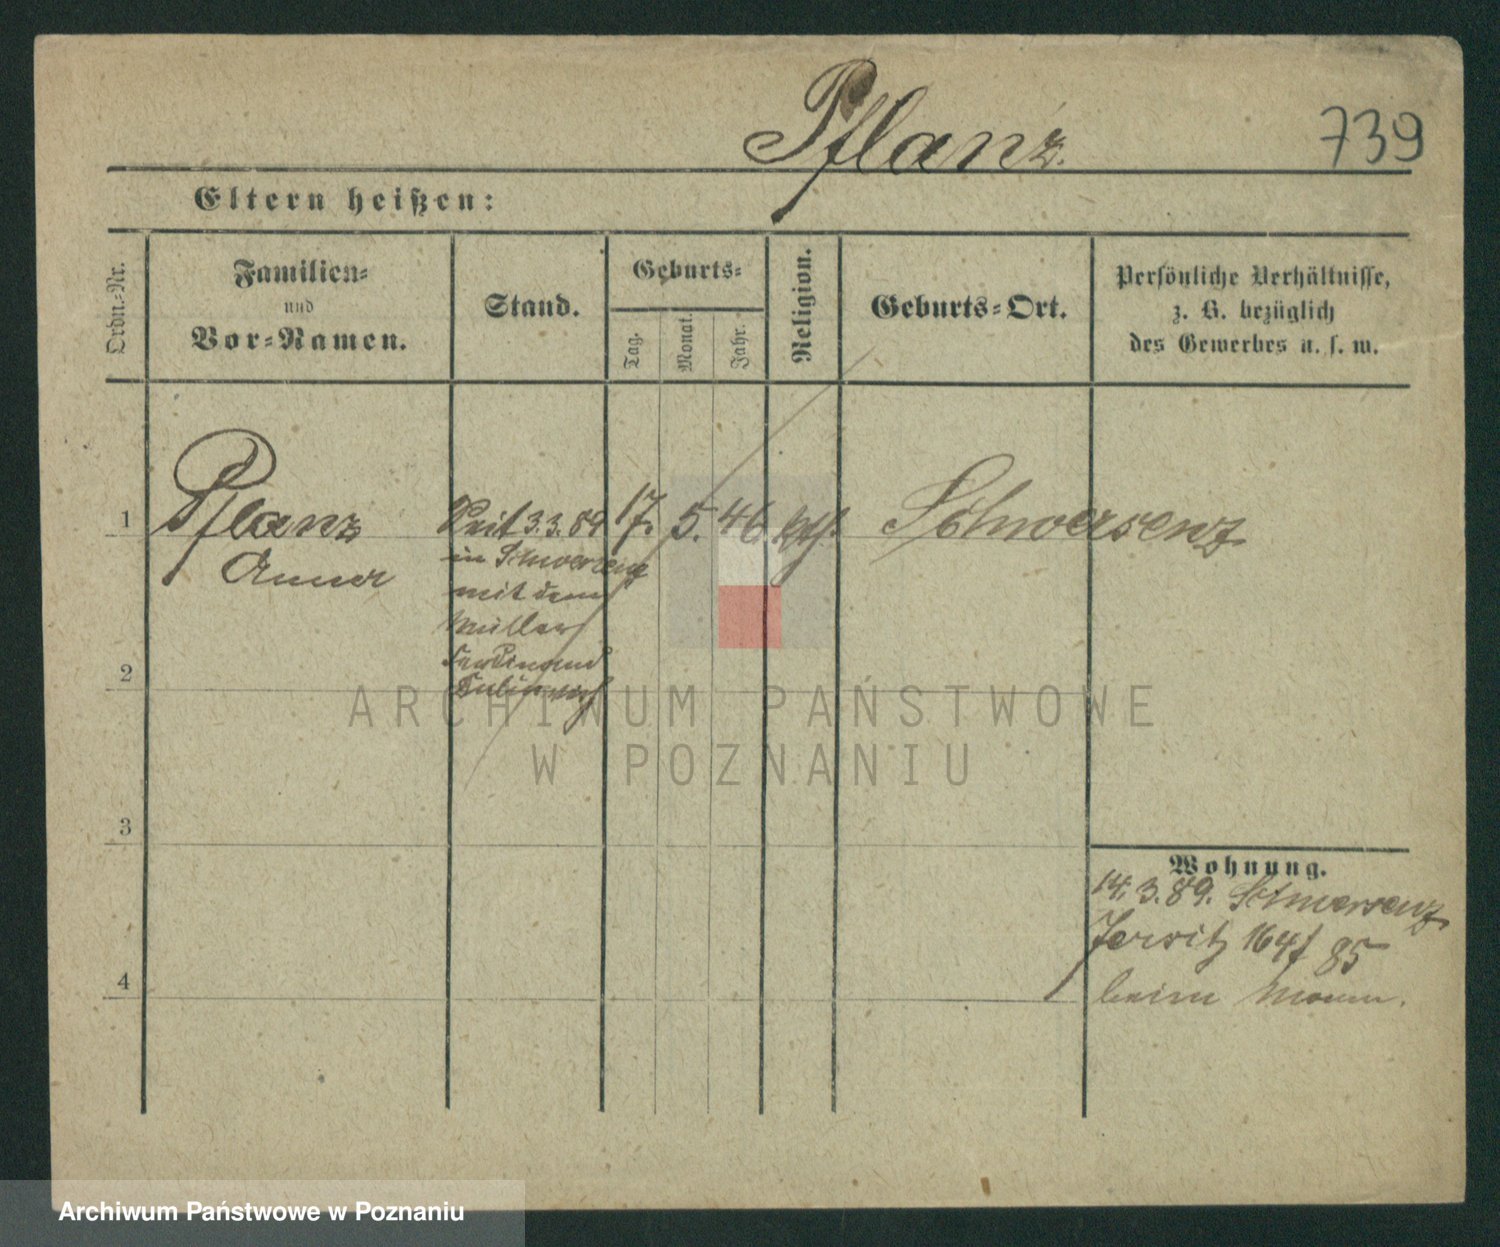 Pflanz.
739
Eltern heißen:
Ordn.-Nr.
Familien-
und
Vor-Namen.
Stand.
Geburts-
Tag.
Monat.
Jahr.
Religion.
Geburts-Ort.
Persönliche Verhältnisse,
z. B. bezüglich
des Gewerbes u. s. w.
1
Pflanz
Anna
Seit 3.3.89
in Schwersenz
mit dem
Müller
Ferdinand
17.
5.
46
kth.
Schwersenz
2
3
4
Wohnung.
14.3.89. Schwersenz
Jersitz 164/85
beim Mann.
ARCHIWUM PAŃSTWOWE
W POZNANIU
Archiwum Państwowe w Poznaniu